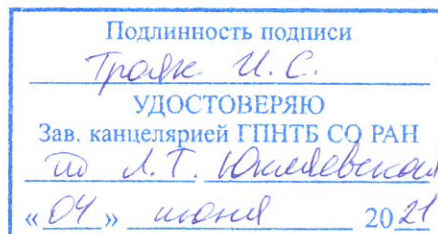 Подлинность подписи
Трояк И. С.
УДОСТОВЕРЯЮ
Зав. канцелярией ГПНТБ СО РАН
Л. Т.
«04» июня 2021